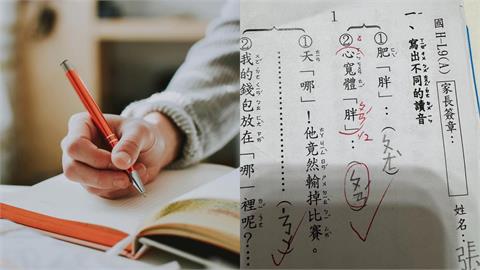 1
國 H-L9(A)
家長簽章：
姓名：張
一、寫出不同的讀音
①肥「胖」：(ㄆㄤ
②心寬體「胖」：
①天「哪」！他竟然輸掉比賽。
②我的錢包放在「哪」裡呢？……